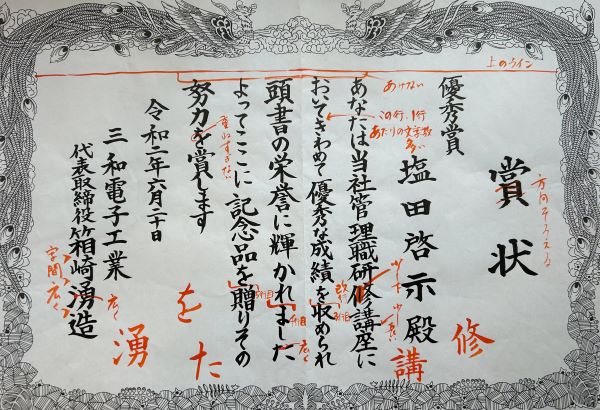 賞状
優秀賞
塩田啓示殿
あなたは当社管理職研修講座に
おいてきわめて優秀な成績を収められ
頭書の栄誉に輝かれました
よってここに記念品を贈りその
努力を賞します
令和二年六月二十日
三和電子工業
代表取締役箱崎湧造
上のライン
あけない
この行、1行
あたりの文字数
多い
方向そろえる
字間広く
広く
修
講
た
を
湧